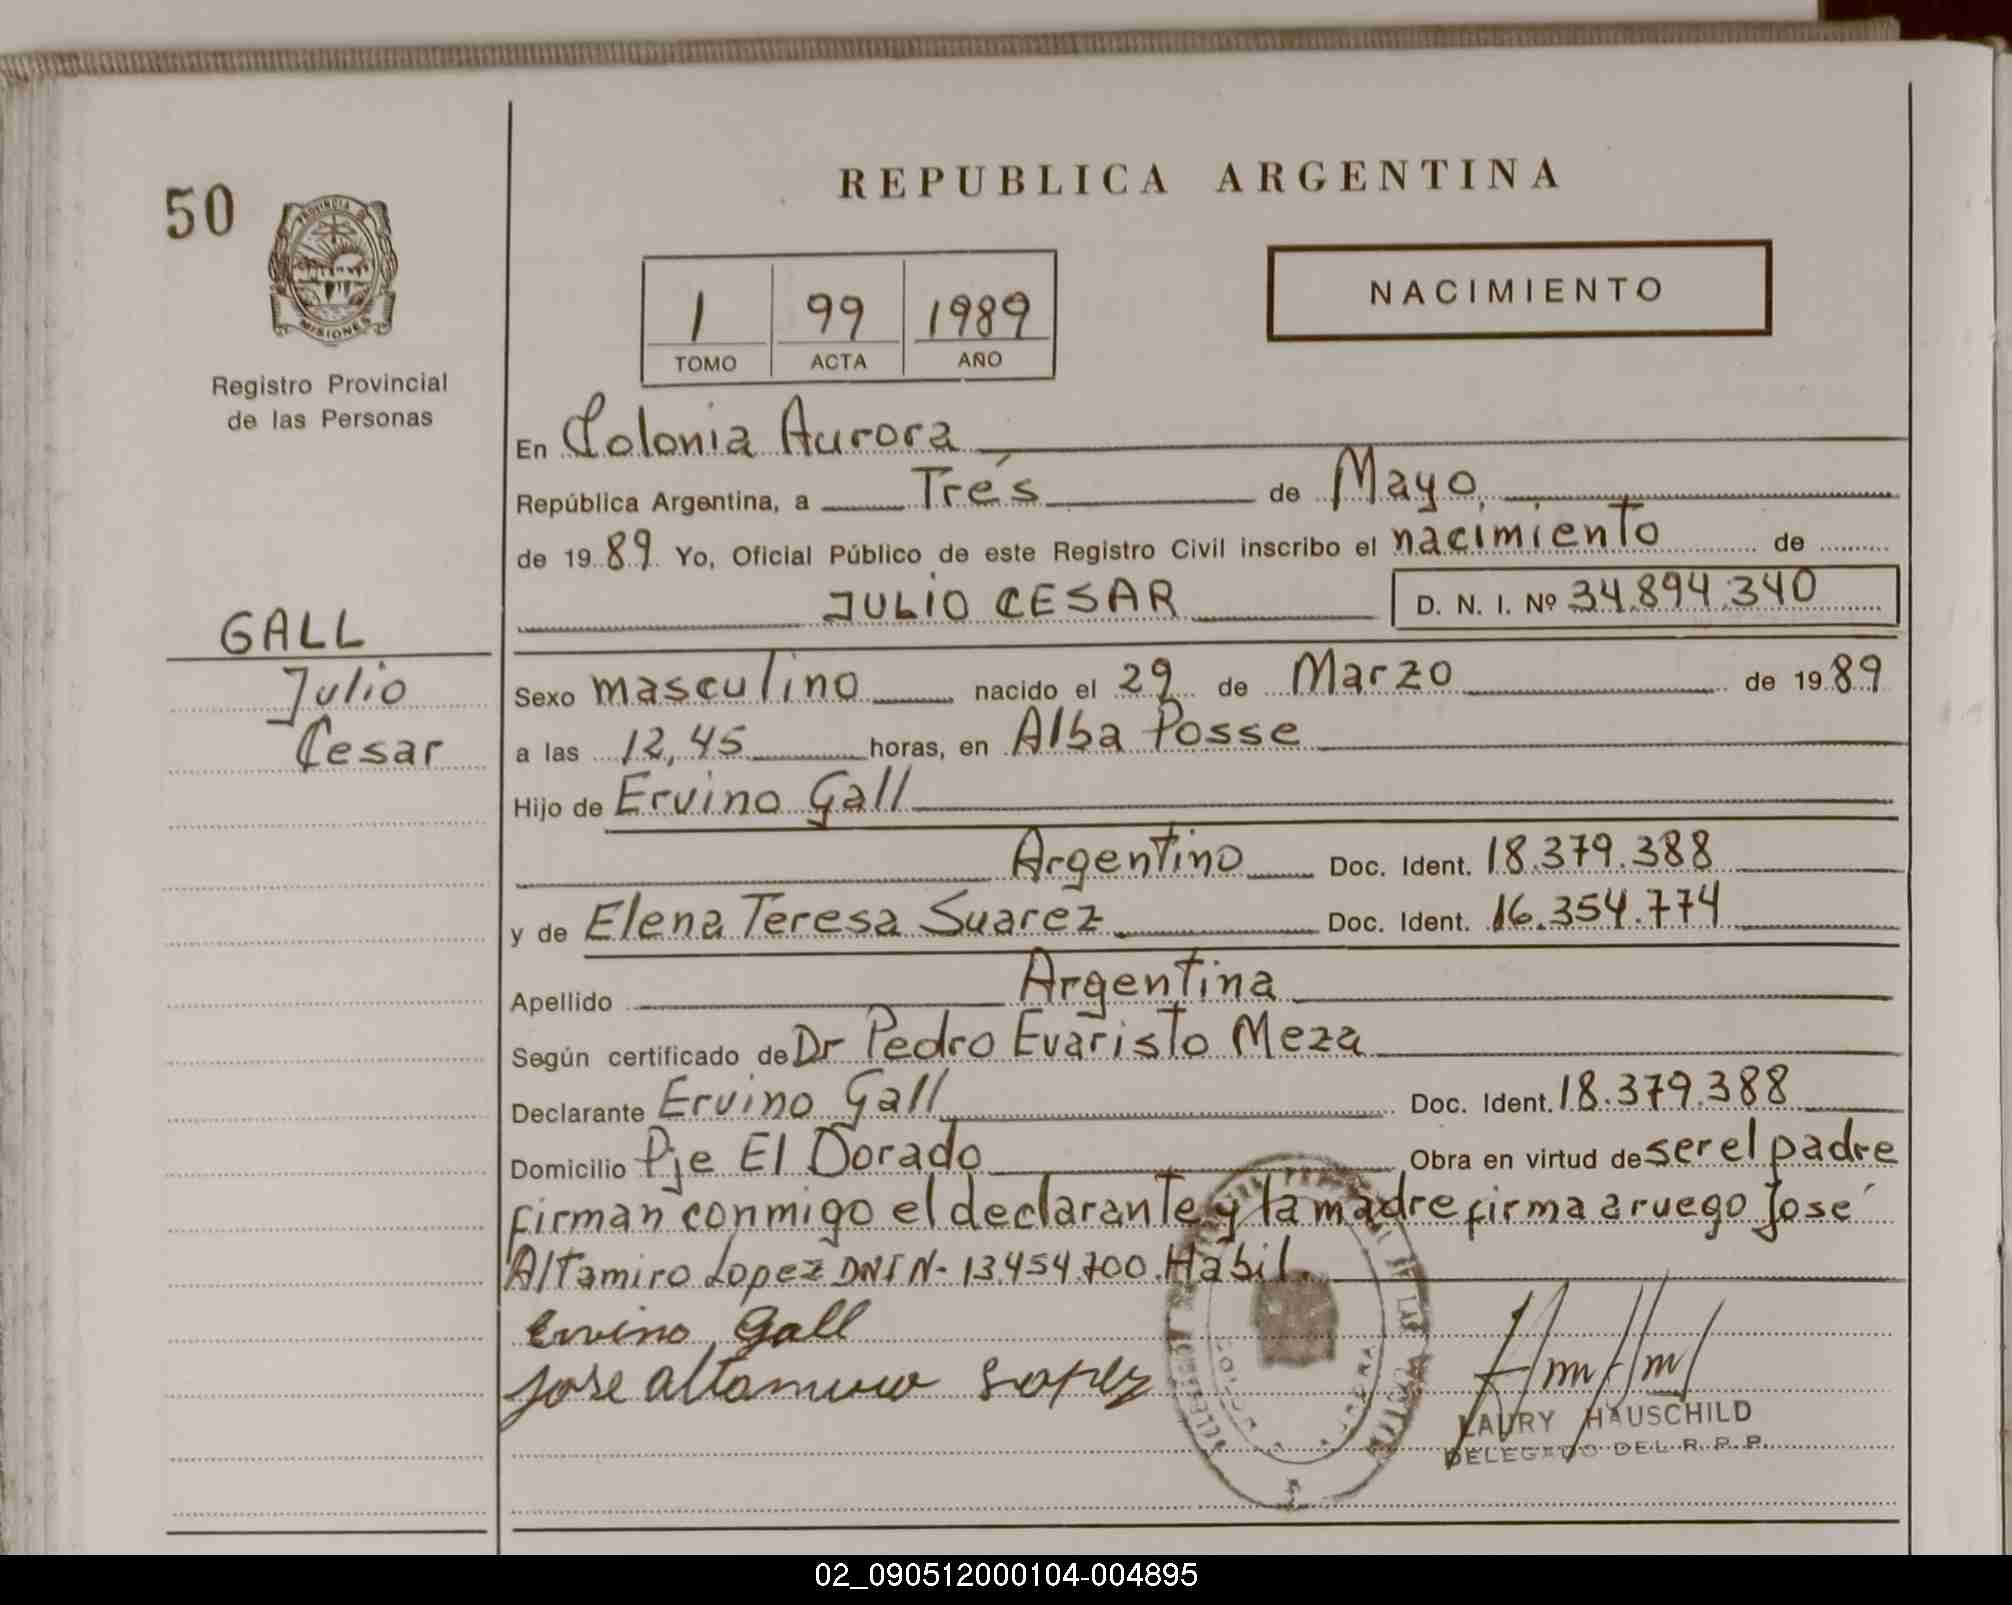 50
PROVINCIA DE
MISIONES
Registro Provincial
de las Personas
GALL
Julio
Cesar
REPUBLICA ARGENTINA
1 99 1989
TOMO ACTA AÑO
NACIMIENTO
En Colonia Aurora
República Argentina, a Trés de Mayo
de 19 89 Yo, Oficial Público de este Registro Civil inscribo el nacimiento de
JULIO CESAR D. N. I. Nº 34.894.340
Sexo masculino nacido el 29 de Marzo de 19 89
a las 12,45 horas, en Alba Posse
Hijo de Ervino Gall
Argentino Doc. Ident. 18.379.388
y de Elena Teresa Suarez Doc. Ident. 16.354.774
Apellido Argentina
Según certificado de Dr Pedro Evaristo Meza
Declarante Ervino Gall Doc. Ident. 18.379.388
Domicilio Pje El Dorado Obra en virtud de ser el padre
firman conmigo el declarante y la madre firma a ruego José
Altamiro Lopez DNI N- 13.454.700. Habil.
Ervino Gall
Jose altamiro Lopez
LAURY HAUSCHILD
DELEGADO DEL R. P. P.
02_090512000104-004895